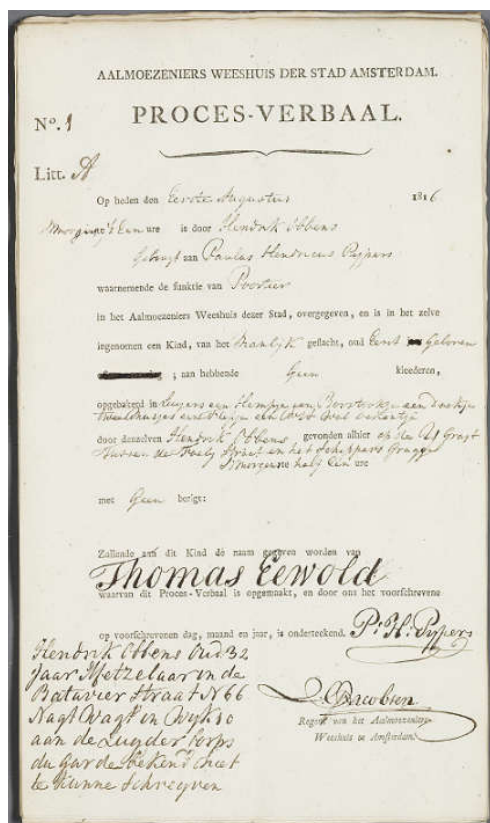 AALMOEZENIERS WEESHUIS DER STAD AMSTERDAM.
PROCES-VERBAAL.
No. 1
Litt. A
Op heden den Eerste Augustus 1816
's Een ure is door Hendrik Obbens
Gebragt aan Paulus Hendricus Pypers
waarnemende de funktie van Poortier
in het Aalmoezeniers Weeshuis dezer Stad, overgegeven, en is in het zelve
ingenomen een Kind, van het Manlyk geslacht, oud Eerst Geboren
; aan hebbende Geen kleederen,
opgebakerd in Luyers een Hempje een Borstrokje een doekje
door denzelven Hendrik Obbens gevonden alhier op de Graft
Tussen de Straet en het Schippers
Smorgens half Een ure
met Geen berigt:
Zullende aan dit Kind de naam gegeven worden van
Thomas Eewold
waarvan dit Proces-Verbaal is opgemaakt, en door ons het voorschrevene
op voorschrevenen dag, maand en jaar, is onderteekend. P: H: Pypers
Jacobsen
Regent van het Aalmoezeniers-
Weeshuis te Amsterdam.
Hendrik Obbens Oud 32
Jaar Metzelaar in de
Batavier Straat N 66
Nagt Wagt in Wyk 10
aan de Zuyder Corps
du Garde bekend niet
te kunne Schreyven